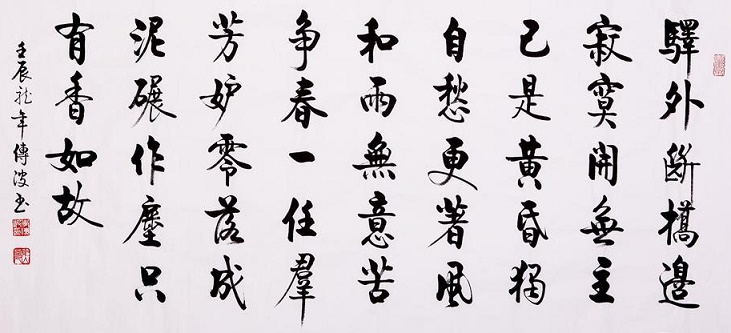 驛外斷橋邊
寂寞開無主
已是黄昏獨
自愁更著風
和雨無意苦
争春一任羣
芳妒零落成
泥碾作塵只
有香如故
壬辰龍年傅波书